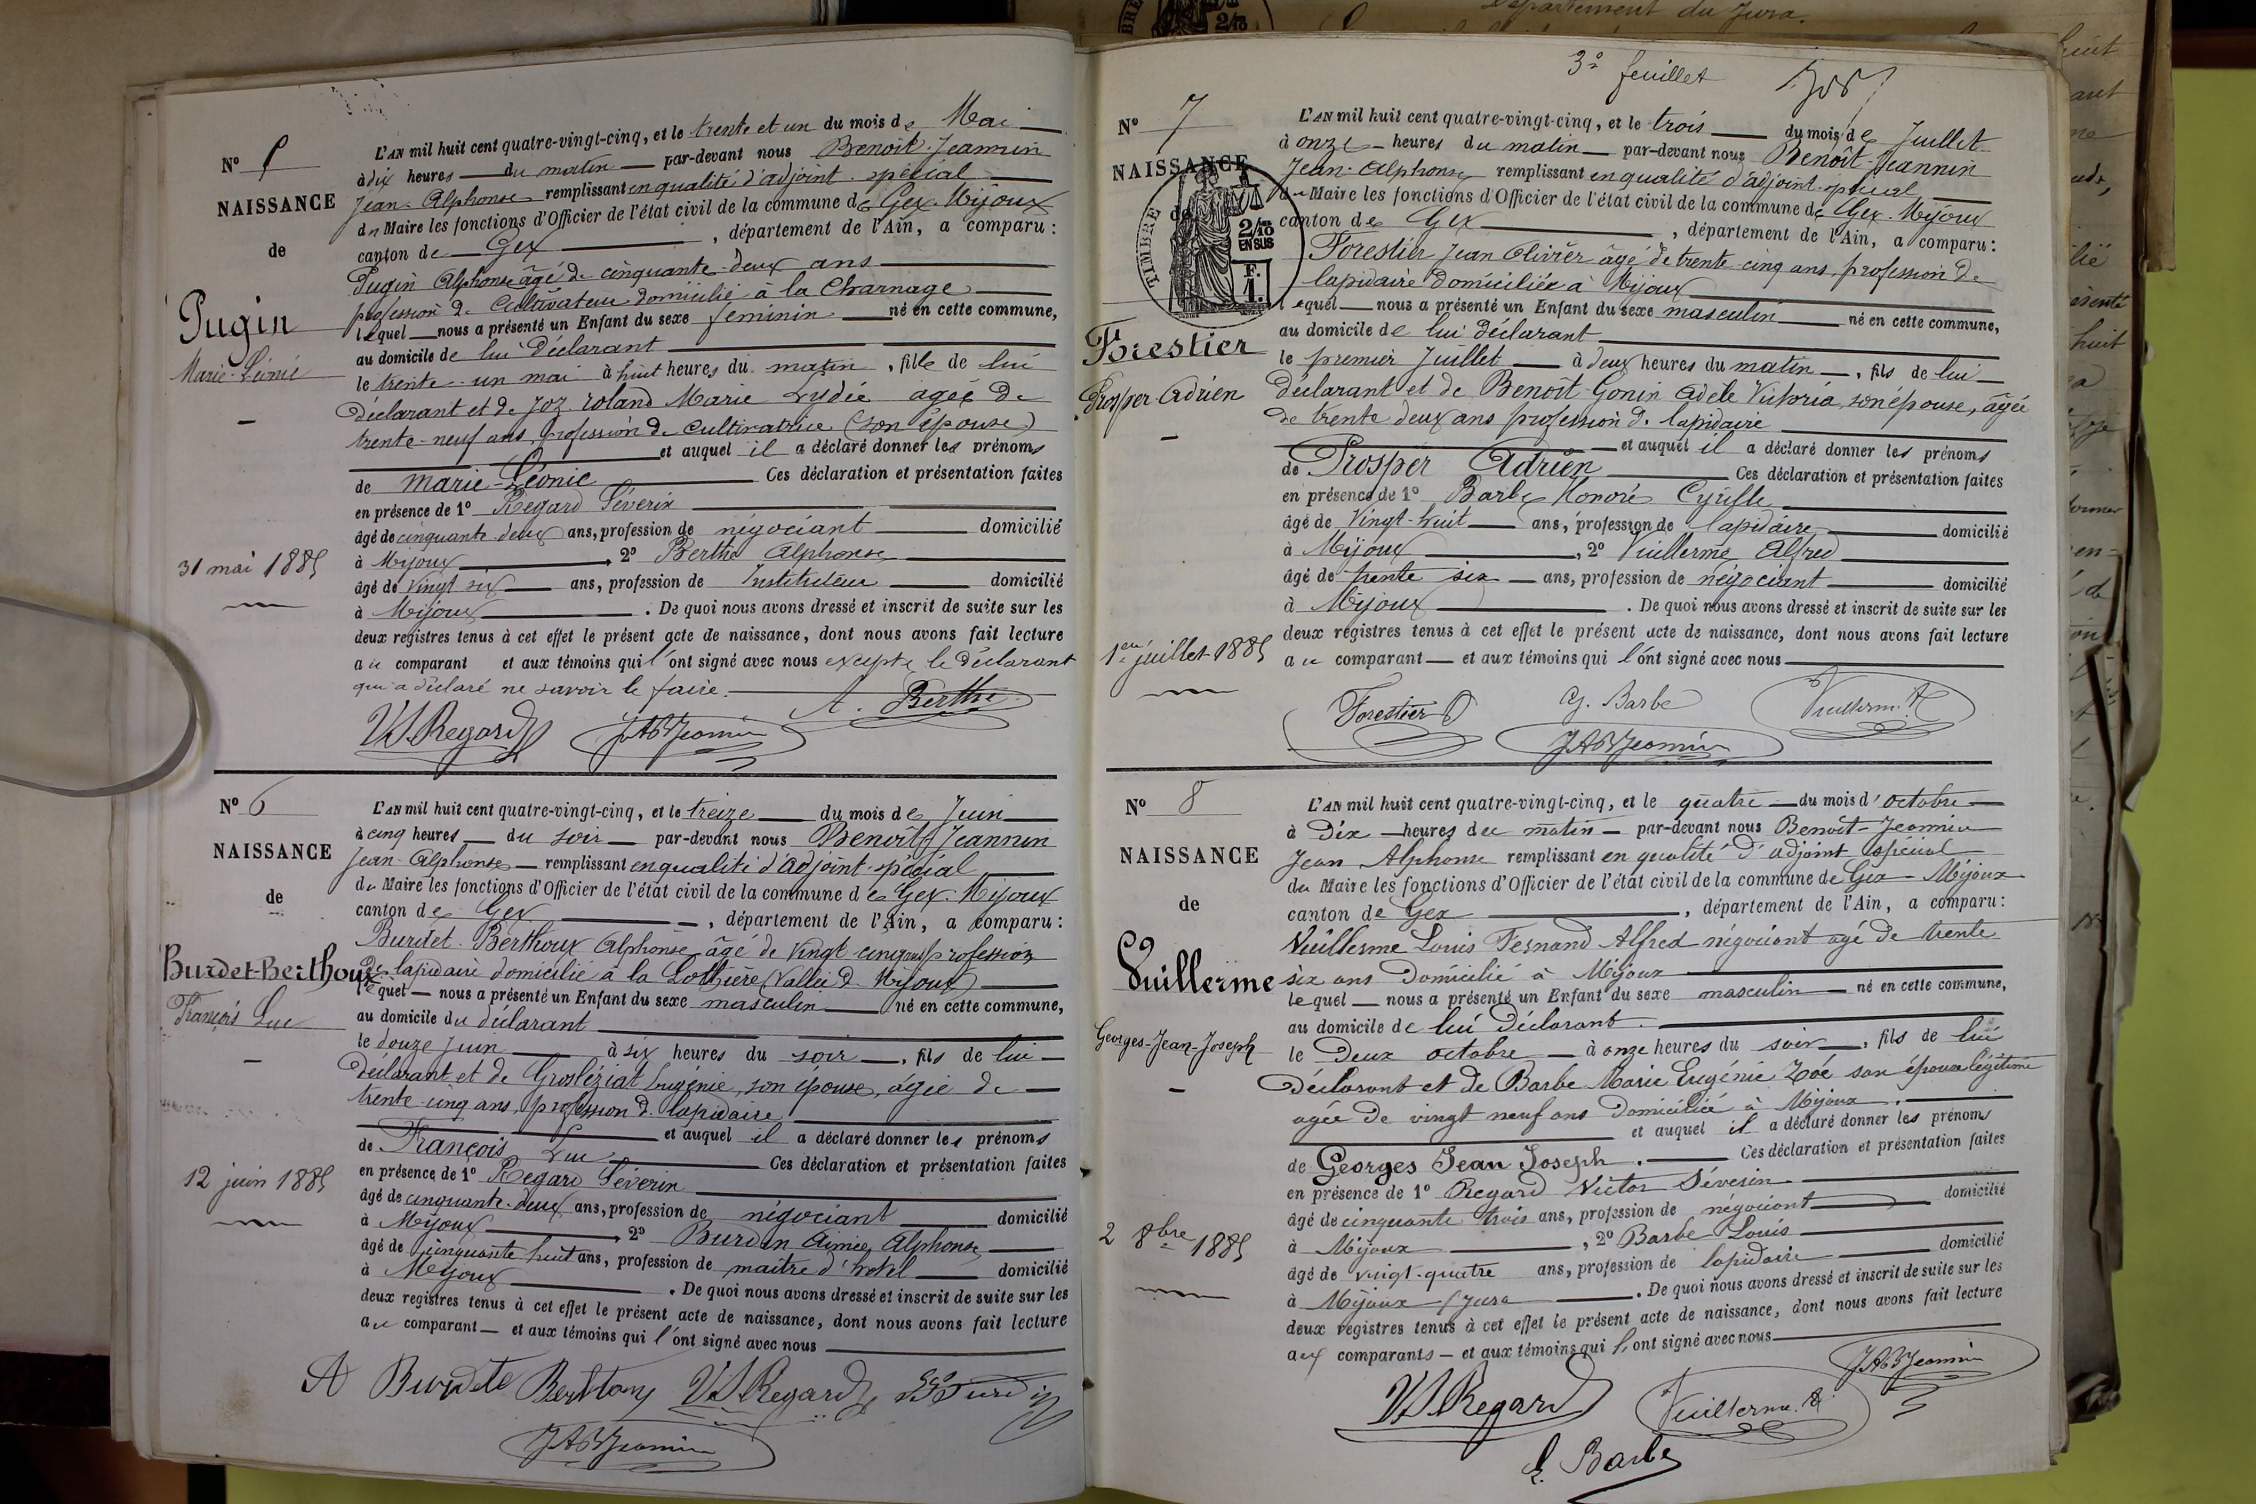 Nº 5
NAISSANCE
de
Pugin
Marie-Léonie
31 mai 1885
L'AN mil huit cent quatre-vingt-cinq, et le trente et un du mois de Mai
à dix heures du matin par-devant nous Benoit-Jeannin
Jean-Alphonse remplissant en qualité d'adjoint-spécial
du Maire les fonctions d'Officier de l'état civil de la commune de Gex-Mijoux
canton de Gex, département de l'Ain, a comparu :
Pugin Alphonse âgé de cinquante-deux ans
profession de Cultivateur domicilié à la Charnage
lequel nous a présenté un Enfant du sexe féminin né en cette commune,
au domicile de lui Déclarant
le trente-un mai à huit heures du matin, fille de lui
Déclarant et de Joz-roland Marie Lydie agée de
trente-neuf ans, profession de cultivatrice (son épouse)
et auquel il a déclaré donner les prénoms
de Marie-Léonie Ces déclaration et présentation faites
en présence de 1º Regard Séverin
âgé de cinquante-deux ans, profession de négociant domicilié
à Mijoux 2º Berthe Alphonse
âgé de Vingt six ans, profession de Instituteur domicilié
à Mijoux. De quoi nous avons dressé et inscrit de suite sur les
deux registres tenus à cet effet le présent acte de naissance, dont nous avons fait lecture
au comparant et aux témoins qui l'ont signé avec nous excepté le déclarant
qui a déclaré ne savoir le faire.
A. Berthe
V.S. Regard JAB Jeannin
Nº 6
NAISSANCE
de
Burdet-Berthoux
François Luc
12 juin 1885
L'AN mil huit cent quatre-vingt-cinq, et le treize du mois de Juin
à cinq heures du soir par-devant nous Benoît-Jeannin
Jean-Alphonse remplissant en qualité d'adjoint-spécial
du Maire les fonctions d'Officier de l'état civil de la commune de Gex-Mijoux
canton de Gex, département de l'Ain, a comparu :
Burdet-Berthoux Alphonse âgé de vingt-cinq ans profession
de lapidaire domicilié à la (Vallée de Mijoux)
lequel nous a présenté un Enfant du sexe masculin né en cette commune,
au domicile du déclarant
le douze juin à six heures du soir, fils de lui
déclarant et de Grosléziat Eugénie, son épouse, âgée de
trente-cinq ans, profession de lapidaire
et auquel il a déclaré donner les prénoms
de François Luc Ces déclaration et présentation faites
en présence de 1º Regard Séverin
âgé de cinquante-deux ans, profession de négociant domicilié
à Mijoux 2º Burdin Aimée Alphonse
âgé de cinquante huit ans, profession de maître d'hotel domicilié
à Mijoux. De quoi nous avons dressé et inscrit de suite sur les
deux registres tenus à cet effet le présent acte de naissance, dont nous avons fait lecture
au comparant et aux témoins qui l'ont signé avec nous
A Burdet Berthoux V.S. Regard
JAB Jeannin
3e feuillet
Nº 7
NAISSANCE
de
TIMBRE
2/10
EN SUS
F.
1.
Forestier
Prosper-Adrien
1er juillet 1885
L'AN mil huit cent quatre-vingt-cinq, et le trois du mois de Juillet
à onze heures du matin par-devant nous Benoît-Jeannin
Jean-Alphonse remplissant en qualité d'adjoint-spécial
du Maire les fonctions d'Officier de l'état civil de la commune de Gex-Mijoux
canton de Gex, département de l'Ain, a comparu :
Forestier Jean Olivier âgé de trente-cinq ans, profession de
lapidaire domicilié à Mijoux
lequel nous a présenté un Enfant du sexe masculin né en cette commune,
au domicile de lui déclarant
le premier Juillet à deux heures du matin, fils de lui
déclarant et de Benoît-Gonin Adele Victoria, son épouse, âgée
de trente deux ans profession de lapidaire
et auquel il a déclaré donner les prénoms
de Prosper Adrien Ces déclaration et présentation faites
en présence de 1º Barbe Honoré Cyrille
âgé de Vingt-huit ans, profession de lapidaire domicilié
à Mijoux, 2º Vuillerme Alfred
âgé de trente six ans, profession de négociant domicilié
à Mijoux. De quoi nous avons dressé et inscrit de suite sur les
deux registres tenus à cet effet le présent acte de naissance, dont nous avons fait lecture
au comparant et aux témoins qui l'ont signé avec nous
Forestier O Cy. Barbe Vuillerme A
JAB Jeannin
Nº 8
NAISSANCE
de
Vuillerme
Georges-Jean-Joseph
2 8bre 1885
L'AN mil huit cent quatre-vingt-cinq, et le quatre du mois d'octobre
à Dix heures du matin par-devant nous Benoit-Jeannin
Jean Alphonse remplissant en qualité d'adjoint spécial
du Maire les fonctions d'Officier de l'état civil de la commune de Gex-Mijoux
canton de Gex, département de l'Ain, a comparu :
Vuillerme Louis Fernand Alfred négociant agé de trente
six ans Domicilié à Mijoux
lequel nous a présenté un Enfant du sexe masculin né en cette commune,
au domicile de lui Déclarant.
le Deux octobre à onze heures du soir, fils de lui
Déclarant et de Barbe Marie Eugénie Zoé son épouse légitime
agée de vingt neuf ans Domiciliée à Mijoux.
et auquel il a déclaré donner les prénoms
de Georges Jean Joseph. Ces déclaration et présentation faites
en présence de 1º Regard Victor Séverin
âgé de cinquante trois ans, profession de négociant domicilié
à Mijoux, 2º Barbe Louis
âgé de vingt-quatre ans, profession de lapidaire domicilié
à Mijoux Jura. De quoi nous avons dressé et inscrit de suite sur les
deux registres tenus à cet effet le présent acte de naissance, dont nous avons fait lecture
aux comparants et aux témoins qui l'ont signé avec nous
JAB Jeannin
V.S. Regard Vuillerme A
L. Barbe
Département du Jura.